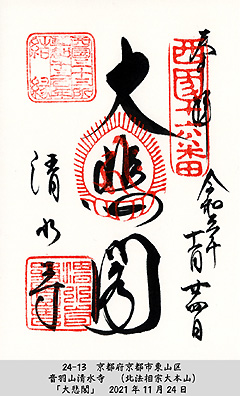 奉拝
西国十六番
令和三年
十一月廿四日
大悲閣
清水寺
24-13 京都府京都市東山区
音羽山清水寺 (北法相宗大本山)
「大悲閣」 2021年11月24日